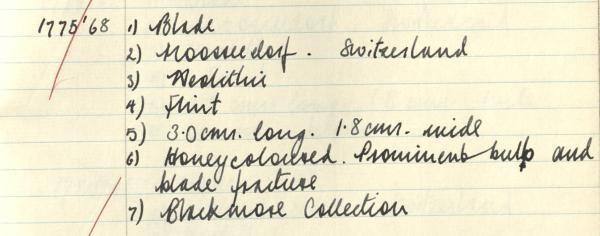 1775'68 1) Blade
2) Moosseedorf. Switzerland
3) Neolithic
4) Flint
5) 3.0cms. long. 1.8cms. wide
6) Honeycoloured. Prominent bulb and
blade fracture
7) Blackmore Collection